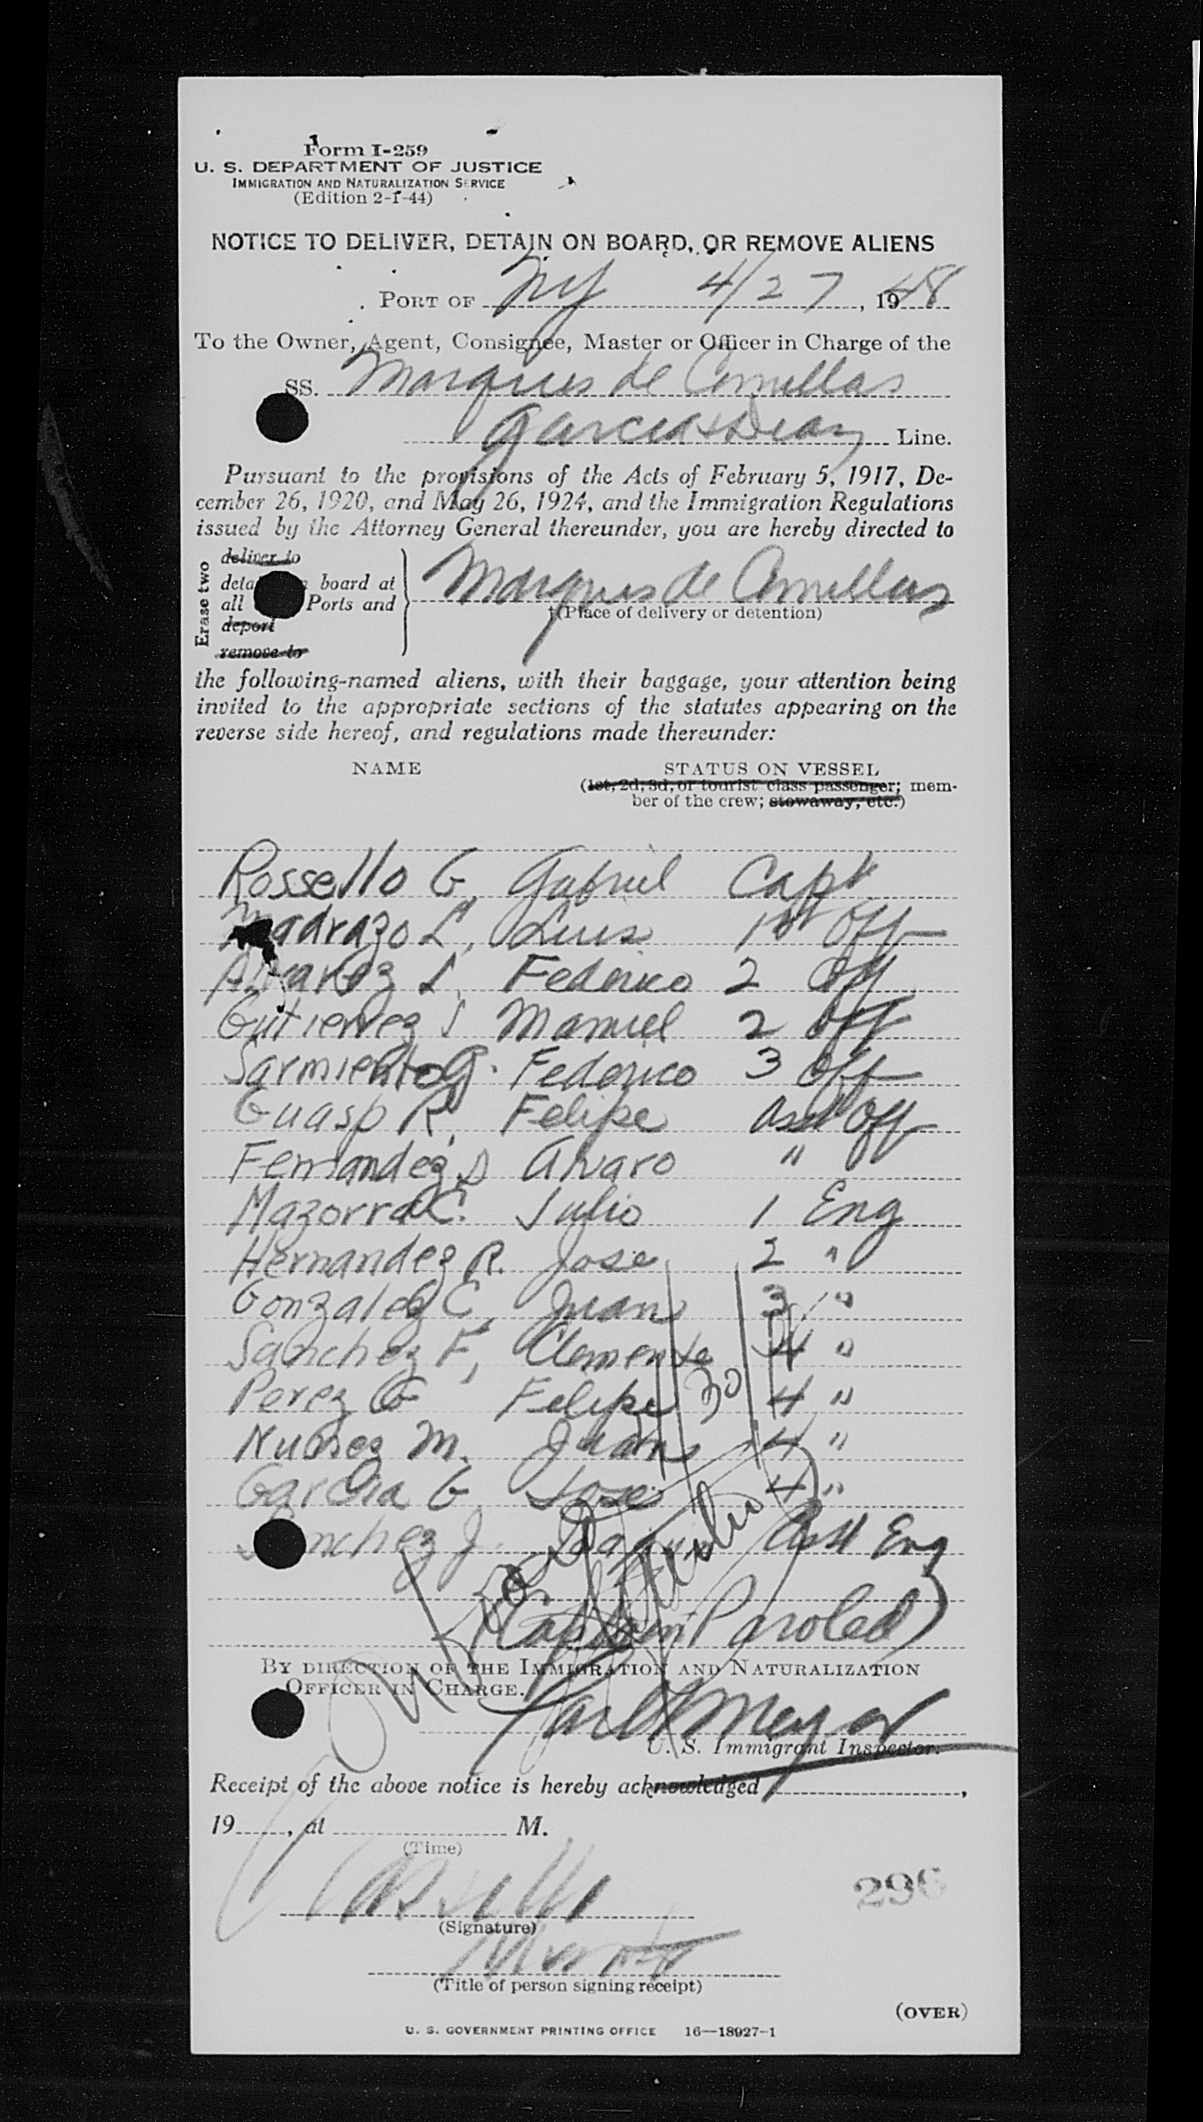 Form I-259
U. S. DEPARTMENT OF JUSTICE
IMMIGRATION AND NATURALIZATION SERVICE
(Edition 2-1-44)
NOTICE TO DELIVER, DETAIN ON BOARD, OR REMOVE ALIENS
PORT OF NY 4/27, 1948
To the Owner, Agent, Consignee, Master or Officer in Charge of the
SS. Marques de Comillas
Garcia & Diaz Line.
Pursuant to the provisions of the Acts of February 5, 1917, De-
cember 26, 1920, and May 26, 1924, and the Immigration Regulations
issued by the Attorney General thereunder, you are hereby directed to
Erase two
deliver to
board at
all Ports and
deport
remove to
Marques de Comillas
(Place of delivery or detention)
the following-named aliens, with their baggage, your attention being
invited to the appropriate sections of the statutes appearing on the
reverse side hereof, and regulations made thereunder:
NAME STATUS ON VESSEL
(1st, 2d, 3d, or tourist class passenger; mem-
ber of the crew; stowaway, etc.)
Rossello G, Gabriel Capt
Madrazo L, Luis 1st Off
Alvarez S, Federico 2 Off
Gutierrez S Manuel 2 Off
Sarmiento G. Federico 3 Off
Guasp R, Felipe Asst Off
Fernandez D Alvaro "
Mazorra C. Julio 1 Eng
Hernandez R. Jose 2 "
Gonzalez C, Juan 3 "
Sanchez F, Clemente 4 "
Perez G Felipe 4 "
Nunez M. Juan 4 "
Garcia G, Jose 4 "
Sanchez J. Asst Eng
30
(Captain Paroled)
BY DIRECTION OF THE IMMIGRATION AND NATURALIZATION
OFFICER IN CHARGE.
U. S. Immigrant Inspector.
Receipt of the above notice is hereby acknowledged ,
19 , at M.
(Time)
Rossello
(Signature)
296
(Title of person signing receipt)
(OVER)
U. S. GOVERNMENT PRINTING OFFICE 16—18927-1